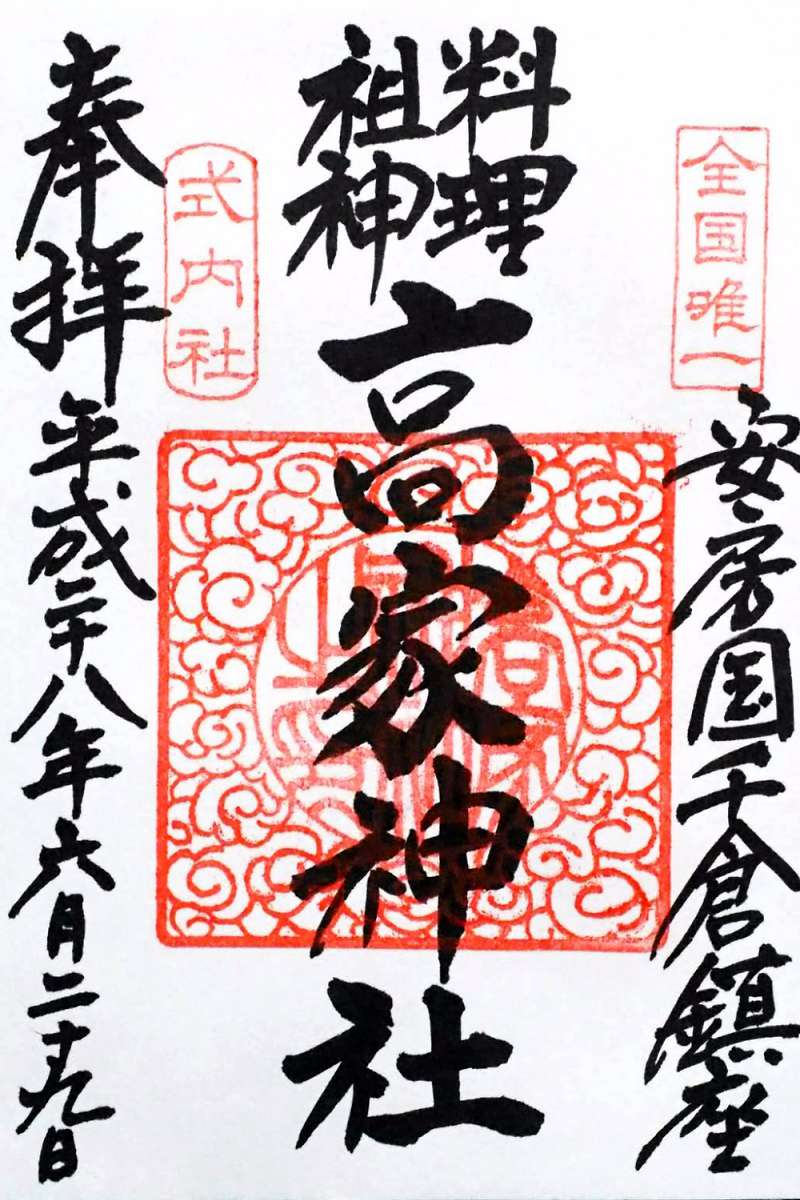 全国唯一
安房国千倉鎮座
料理
祖神
高家神社
式内社
奉拝
平成二十八年六月二十九日